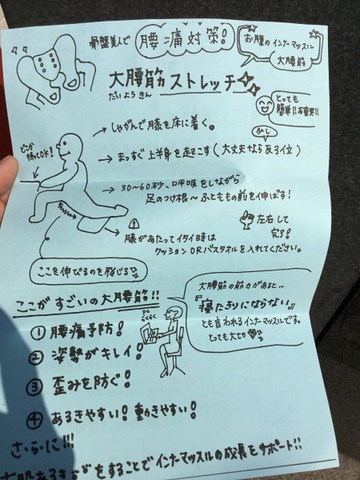 骨盤美人で 腰痛対策!
お腹のインナーマッスル
大腰筋
大腰筋ストレッチ
だいようきん
とっても
簡単!!
どこか
持ってOK!
→しゃがんで膝を床に着く。
→まっすぐ上半身を起こす(大丈夫なら反る位)
→30〜60秒、呼吸をしながら
足のつけ根〜ふとももの前を伸ばす!
左右して
完了!
膝があたってイタイ時は
クッションORバスタオルを入れてください。
ここを伸びるのを感じる
ここがすごいの大腰筋!!
①腰痛予防!
②姿勢がキレイ!
③歪みを防ぐ!
④あるきやすい!動きやすい!
大腰筋の筋力があると…
『寝たきりにならない』
とも言われるインナーマッスルです。
とっても大切
さ・ら・に!!!
をすることでインナーマッスルの成長をサポート!!